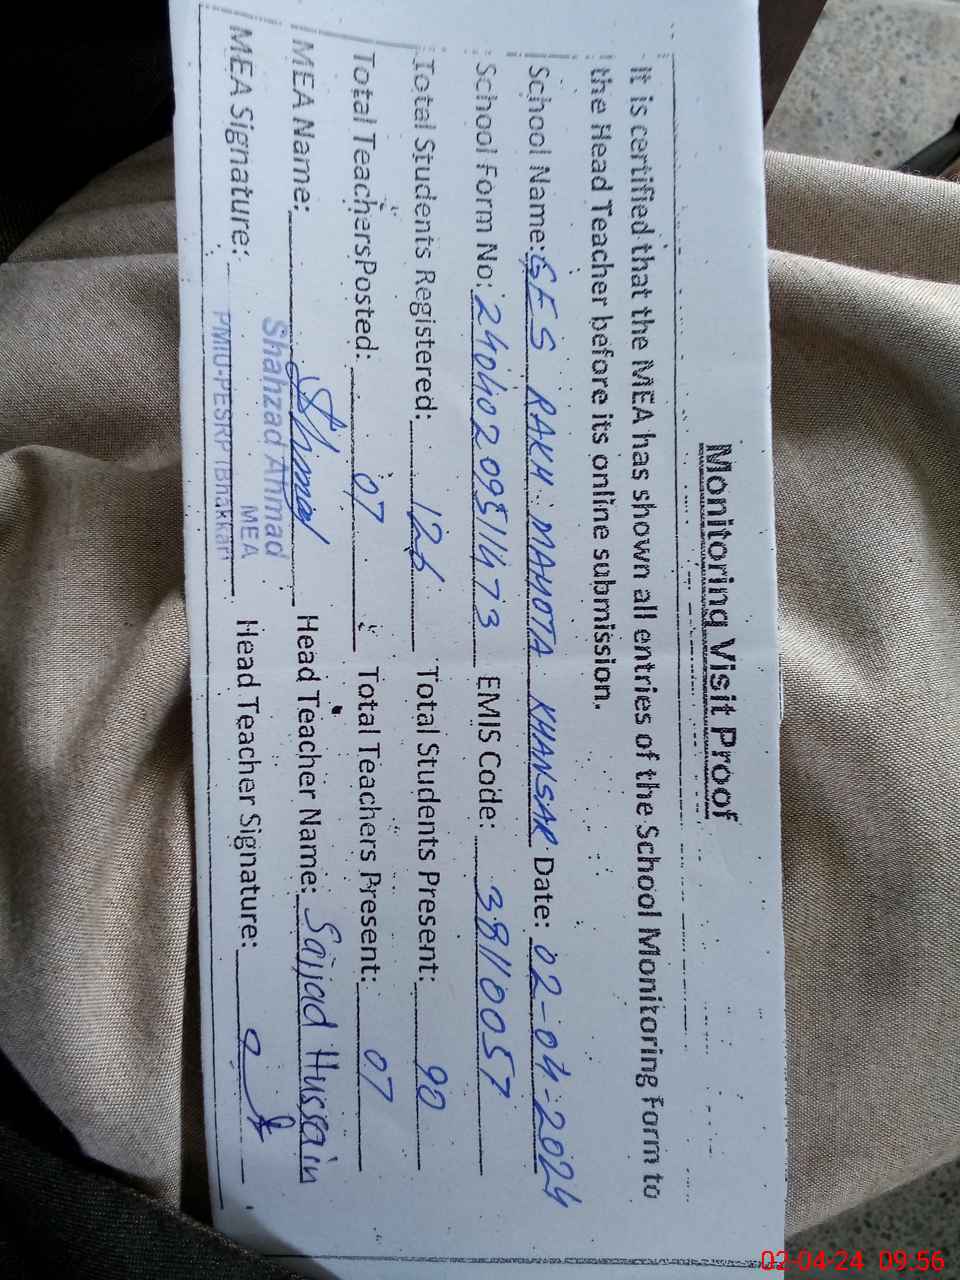 Monitoring Visit Proof
It is certified that the MEA has shown all entries of the School Monitoring Form to
the Head Teacher before its online submission.
School Name: GES RAKH MAHOTA KHANSAR Date: 02-04-2024
School Form No: 2404020951473 EMIS Code: 38110057
Total Students Registered: 126 Total Students Present: 90
Total TeachersPosted: 07 Total Teachers Present: 07
MEA Name: Head Teacher Name: Sajjad Hussain
Shahzad Ahmad
MEA
MEA Signature: PMIU-PESRP (Bhakkar) Head Teacher Signature:
02-04-24 09:56